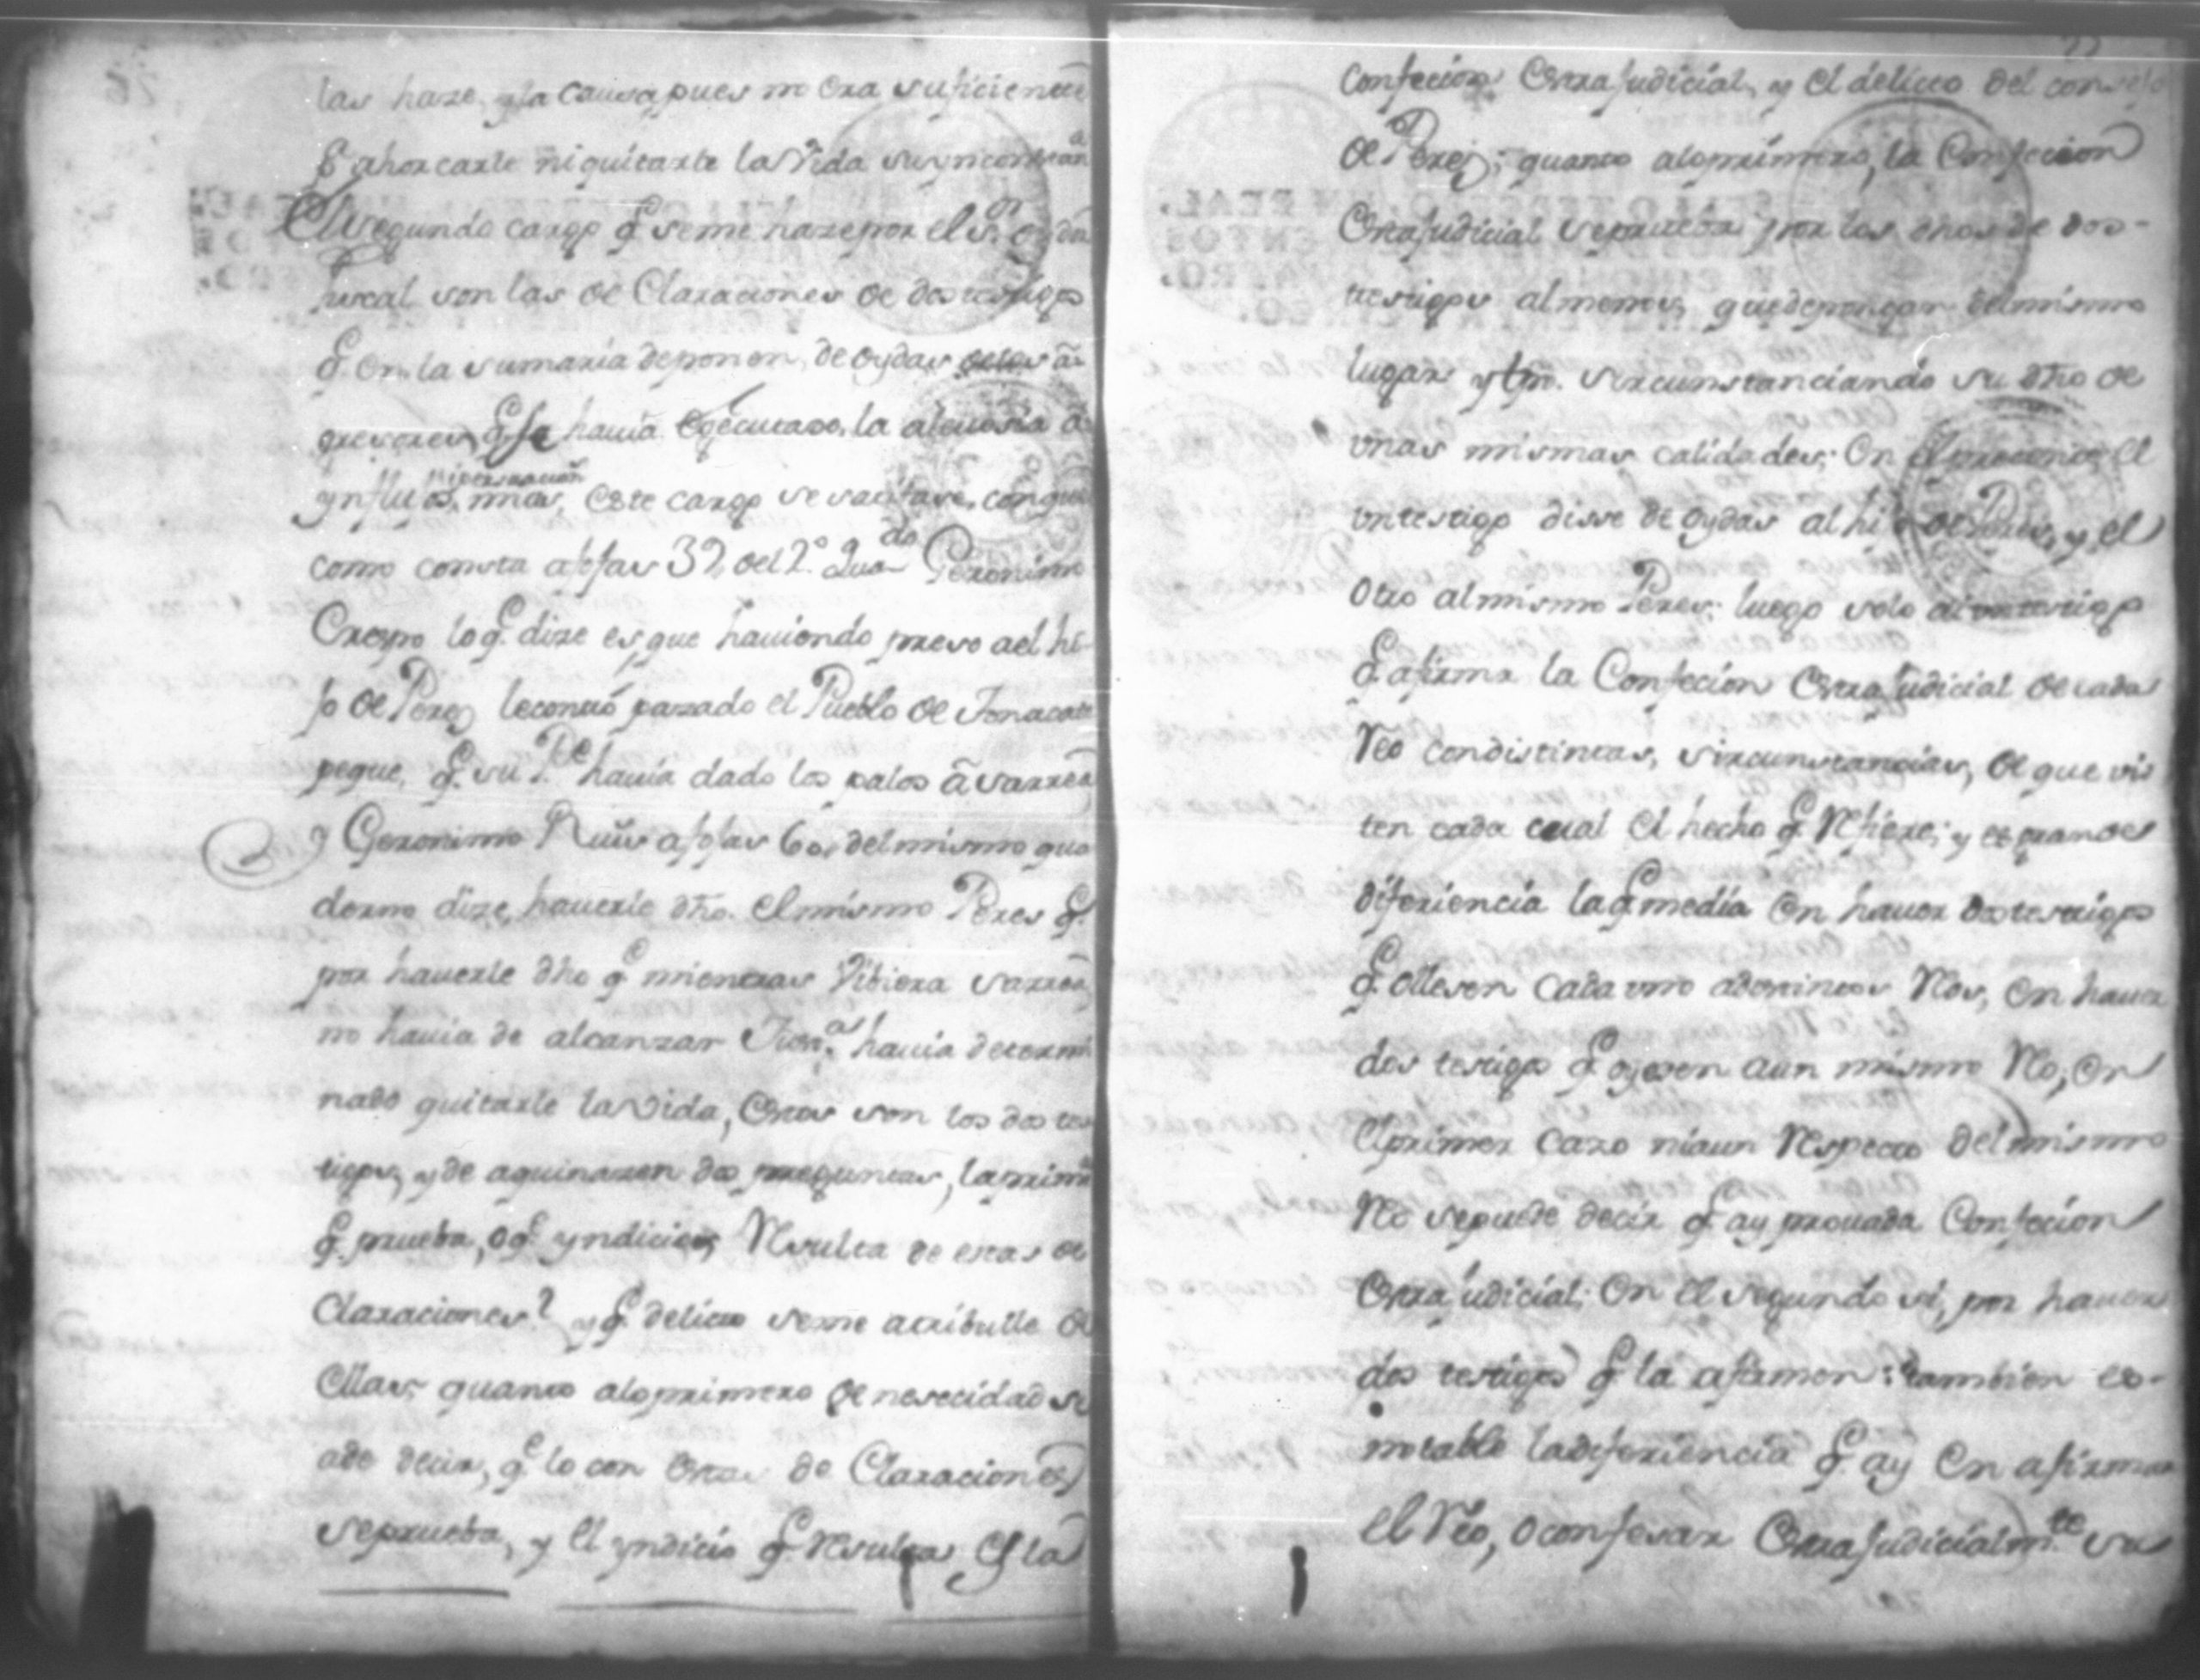 las haze, y la causa, pues no era suficiente
p.ª ahorcarle ni quitarle la Vida
El segundo cargo q.e se me haze por el S.r
fiscal son las de Claraciones de dos testigos
q.e en la sumaria deponen, de oydas
q.e se havia egecutado, la alevosia á
ynflu mia, este cargo se satisface, con que
como consta afojas 32, del 2.º Qua.do Geronimo
Crespo lo q.e dize es, que haviendo preso ael hi-
jo de Perez le contó pazado el Pueblo de Tonacate
peque, q.e su P.e havia dado los palos â Varrea
y Geronimo Ruis afojas 60, del mismo qua
derno dize, haverle dho. el mismo Peres q.e
por haverle dho q.e mientras Vibiera Varrea,
no havia de alcanzar havia determi
nado quitarle la Vida, estos son los dos tes
tigos, y de aqui nazen dos preguntas, la prim.a
q.e prueba, o q.e yndicios, Resulta de estas de
Claraciones? y q.e delicto se me atribulle de
ellas; quanto alo primero de nesecidad se
ade decir, q.e lo con estas de Claraciones
se prueba, y el yndicio q.e Resulta, es la
Confecion Extrajudicial, y el delicto del consejo
de Perez; quanto alo primero, la Confecion
Extrajudicial se prueba por los dhos de dos-
testigos al menos, que depongan del mismo
lugar y tpo. sircunstanciando su dho de
unas mismas calidades; En el el
un testigo disse de oydas al hijo de Peres, y el
otro al mismo Peres; luego solo ai un testigo
q.e afirma la Confecion Extrajudicial de cada
Reo con distintas, sircunstancias, de que vis
ten cada cual el hecho q.e Refiere; y es grande
diferiencia la q.e media en haver dos testigos
q.e ollesen cada uno adistintos Reos, en haver
dos testigos q.e oyesen aun mismo Reo, en
el primer cazo ni aun Respecto del mismo
Reo se puede decir q.e ay provada Confecion
Extrajudicial; En el segundo si, por haver
dos testigos q.e la afirmen: tambien es-
notable la diferiencia q.e ay en afirmar
el Reo, o confesar Extrajudicialm.te su